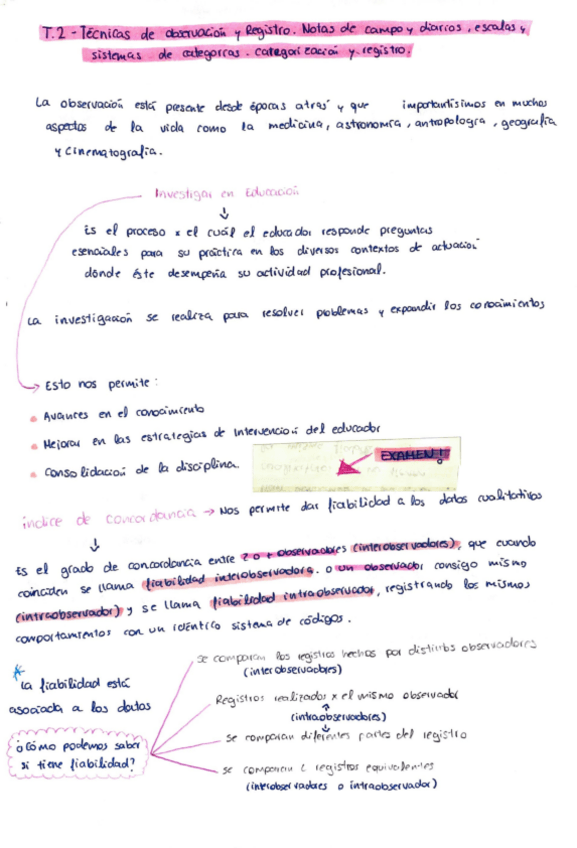 T.2 - Técnicas de observación y Registro. Notas de campo y diarios, escalas y
sistemas de categorías. Categorización y registro.
La observación está presente desde épocas atrás y que importantísimos en muchos
aspectos de la vida como la medicina, astronomía, antropología, geografía
y cinematografía.
Investigar en Educación
↓
Es el proceso x el cuál el educador responde preguntas
esenciales para su práctica en los diversos contextos de actuación
dónde éste desempeña su actividad profesional.
La investigación se realiza para resolver problemas y expandir los conocimientos
Esto nos permite:
Avances en el conocimiento
Mejorar en las estrategias de intervención del educador
Consolidación de la disciplina.
EXAMEN!
índice de concordancia → Nos permite dar fiabilidad a los datos cualitativos
↓
Es el grado de concordancia entre 2 o + observadores (interobservadores), que cuando
coinciden se llama fiabilidad interobservadora. o un observador consigo mismo
(intraobservador) y se llama fiabilidad intraobservador, registrando los mismos
comportamientos con un idéntico sistema de códigos.
La fiabilidad está
asociada a los datos
¿Cómo podemos saber
si tiene fiabilidad?
se comparan los registros hechos por distintos observadores
(interobservadores)
Registros realizados x el mismo observador
(intraobservadores)
se comparan diferentes partes del registro
se comparan 2 registros equivalentes
(interobservadores o intraobservador)